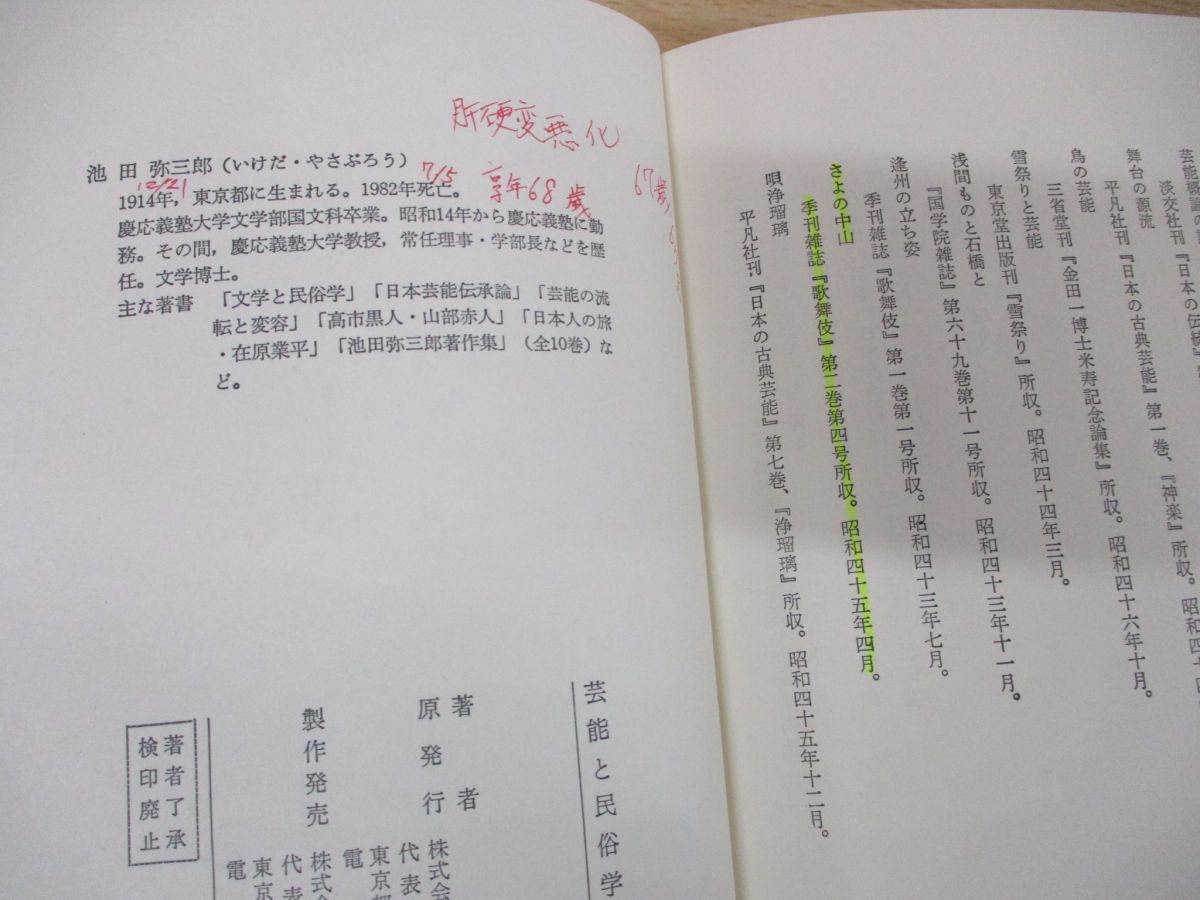 芸能
淡交社刊『日本の伝統』
舞台の源流
平凡社刊『日本の古典芸能』第一巻、『神楽』所収。昭和四十六年十月。
鳥の芸能
三省堂刊『金田一博士米寿記念論集』所収。昭和四十六年十月。
雪祭りと芸能
東京堂出版刊『雪祭り』所収。昭和四十四年三月。
浅間ものと石橋と
『国学院雑誌』第六十九巻第十一号所収。昭和四十三年十一月。
逢州の立ち姿
季刊雑誌『歌舞伎』第一巻第一号所収。昭和四十三年七月。
さよの中山
季刊雑誌『歌舞伎』第二巻第四号所収。昭和四十五年四月。
唄浄瑠璃
平凡社刊『日本の古典芸能』第七巻、『浄瑠璃』所収。昭和四十五年十二月。
肝硬変悪化
池田 弥三郎(いけだ・やさぶろう)
12/21
7/5
享年68歳
67歳
1914年,東京都に生まれる。1982年死亡。
慶応義塾大学文学部国文科卒業。昭和14年から慶応義塾に勤
務。その間,慶応義塾大学教授,常任理事・学部長などを歴
任。文学博士。
主な著書 「文学と民俗学」「日本芸能伝承論」「芸能の流
転と変容」「高市黒人・山部赤人」「日本人の旅
・在原業平」「池田弥三郎著作集」(全10巻)な
ど。
芸能と民俗学
著者
原発行
株式会
代表
東京都
電
製作発売
株式会
代表
東京
電
著者了承
検印廃止